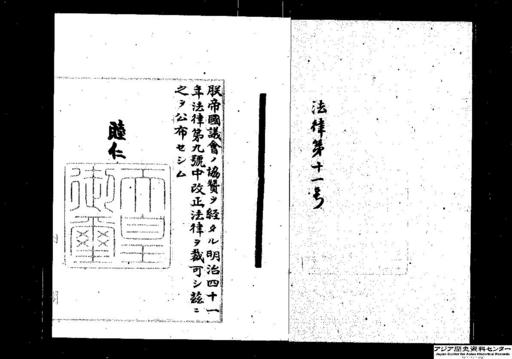 法律第十一号
朕帝國議會ノ協賛ヲ経タル明治四十一
年法律第九號中改正法律ヲ裁可シ茲ニ
之ヲ公布セシム
睦仁
天皇
御璽
アジア歴史資料センター
Japan Center for Asian Historical Records